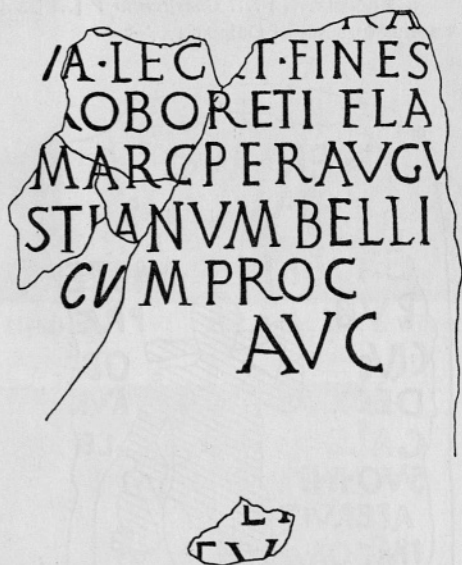 RA
A·LEG ET·FINES
ROBORETI FLA
MARC PER AVGV
STIANVM BELLI
CVM PROC
AVG